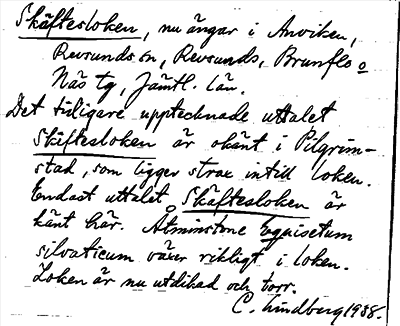 Skäftesloken, nu ängar i Anviken,
Revsunds sn, Revsunds, Brunflo o
Näs tg, Jämtl. län.
Det tidigare upptecknade uttalet
Skäftesloken är okänt i Pilgrim-
stad, som ligger strax intill loken.
Endast uttalet Skäftesloken är
känt här. Åtminstone Equisetum
silvaticum växer rikligt i loken.
Loken är nu utdikad och torr.
C. Lindberg 1938.